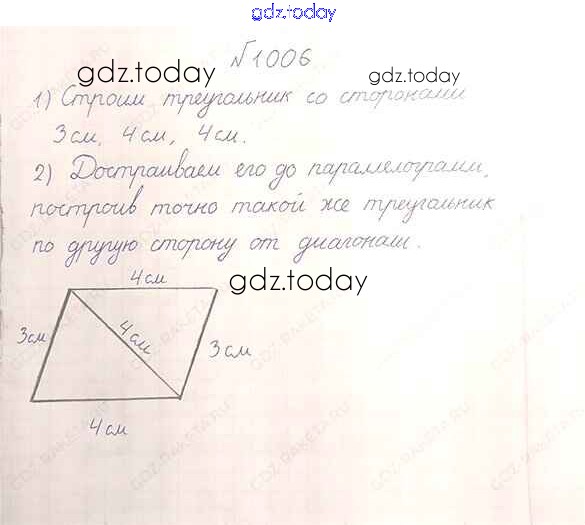 gdz.today
№1006
gdz.today gdz.today
1) Строим треугольник со сторонами
3 см, 4 см, 4 см.
2) Достраиваем его до параллелограмм,
построив точно такой же треугольник
по другую сторону от диагонали.
4 см
gdz.today
3 см
4 см
3 см
4 см